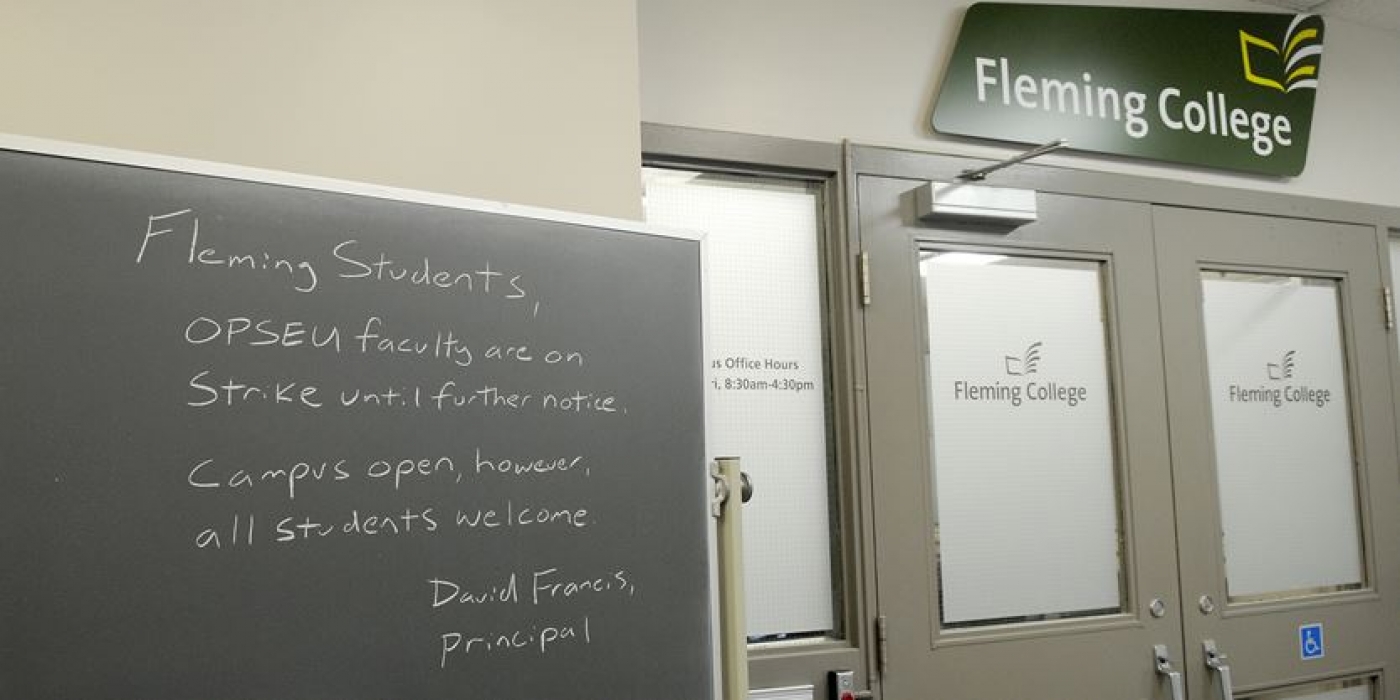 Fleming Students,
OPSEU faculty are on
Strike until further notice.
Campus open, however,
all students welcome.
David Francis,
Principal
Office Hours
8:30am-4:30pm
Fleming College
Fleming College
Fleming College